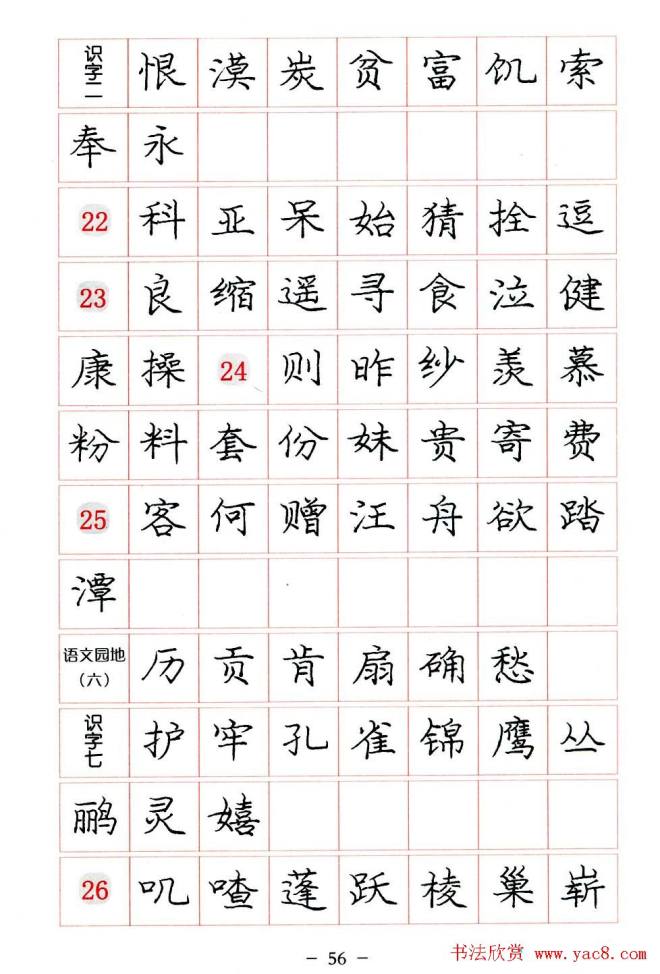 识字二 恨 漠 炭 贫 富 饥 索
奉 永
22 科 亚 呆 始 猜 拴 逗
23 良 缩 遥 寻 食 泣 健
康 操 24 则 昨 纱 羡 慕
粉 料 套 份 妹 贵 寄 费
25 客 何 赠 汪 舟 欲 踏
潭
语文园地(六) 历 贡 肯 扇 确 愁
识字七 护 牢 孔 雀 锦 鹰 丛
鹏 灵 嬉
26 叽 喳 蓬 跃 棱 巢 崭
- 56 -
书法欣赏 www.yac8.com